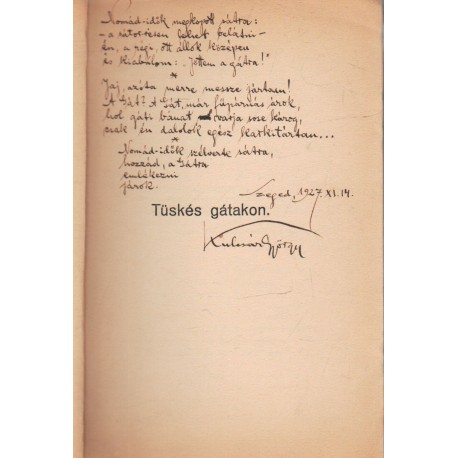 Nomád-idők megkopott sátra:
- a sátorrésen lehet belátni -
én, a régi, ott állok középen
és kiabálom: „Jöttem a gátra!"
*
Jaj, azóta merre messze jártam!
A Gát? A Gát, már fűpárnás árok,
hol gáti bánat varja sose károg,
csak én dalolok egész
*
Nomád-idők szélverte sátra,
hozzád, a Gátra
emlékezni
járok.
Szeged, 1927. XI. 14.
Tüskés gátakon.
Kulcsár György